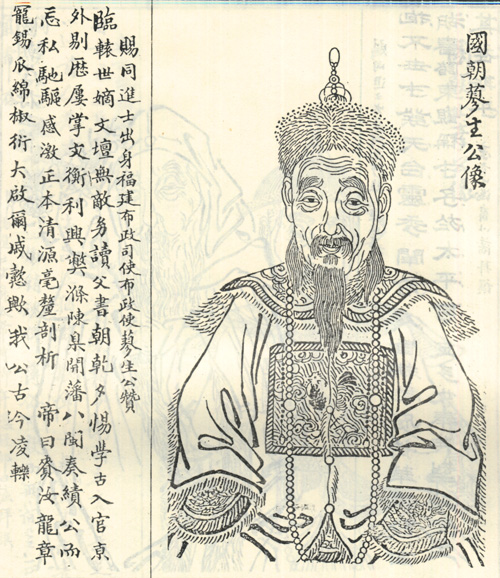 國朝蓼生公像
賜同進士出身福建布政司使布政使蓼生公贊
臨轅世嫡文壇無敵務讀父書朝乾夕惕學古入官京
外剔歷屢掌文衡利興獘滌陳臬開藩八閩奏績公而
忘私馳驅感激正本清源毫釐剖析 帝曰賚汝龍章
寵錫瓜綿椒衍大啟爾戚懿歟我公古今凌轢